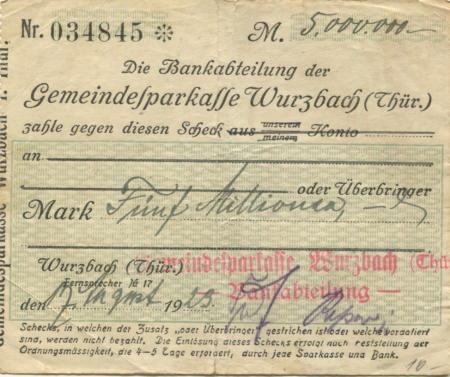 Nr. 034845 * M. 5.000.000-
Die Bankabteilung der
Gemeindesparkasse Wurzbach (Thür.)
zahle gegen diesen Scheck aus unserem meinem Konto
an
oder Überbringer
Mark Fünf Millionen,
Gemeindesparkasse Wurzbach (Thür
Bankabteilung —
Wurzbach (Thür.)
Fernsprecher № 17
den August 1923
Schecks, in welchen der Zusatz „oder Überbringer" gestrichen ist oder welche vordatiert
sind, werden nicht bezahlt. Die Einlösung dieses Schecks erfolgt nach Feststellung der
Ordnungsmässigkeit, die 4-5 Tage erfordert, durch jede Sparkasse und Bank.
10-
Gemeindesparkasse Wurzbach i. Thür.